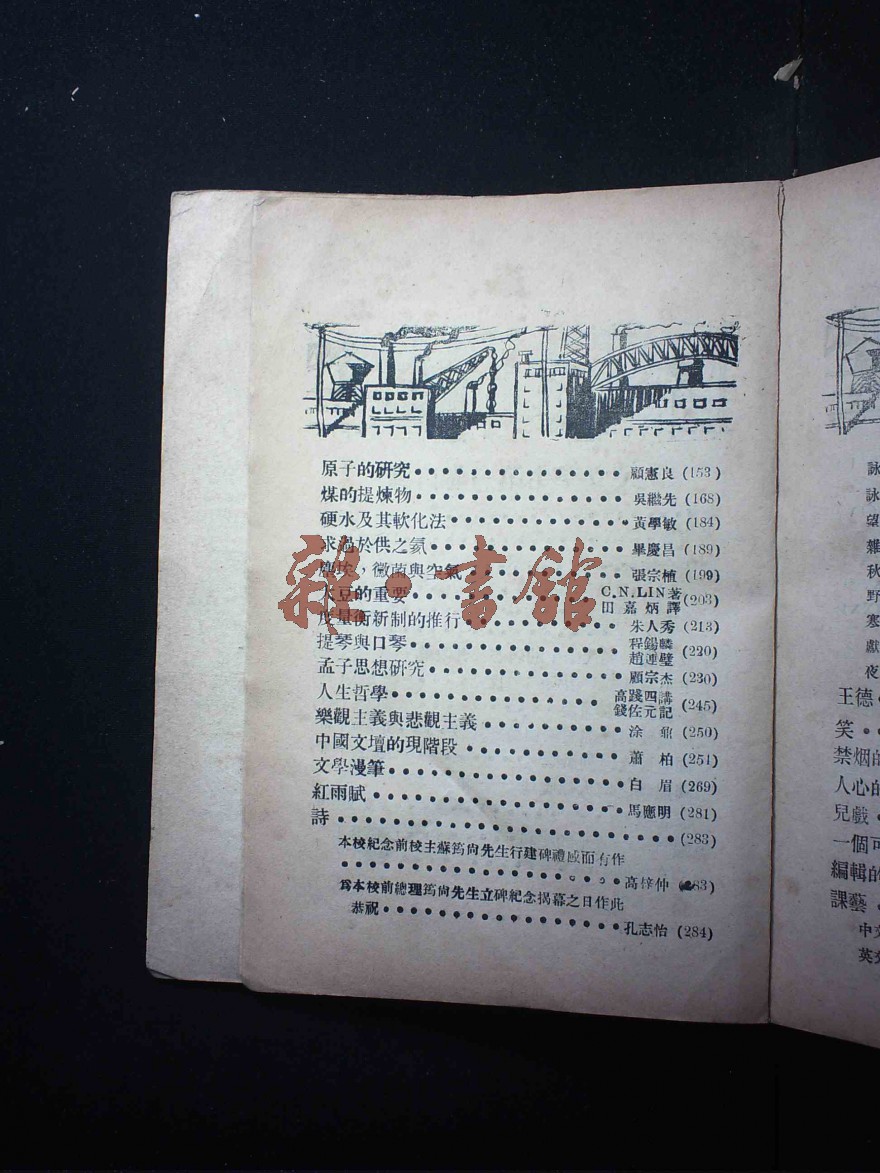 原子的研究 顧憲良 (153)
煤的提煉物 吳繼先 (168)
硬水及其軟化法 黃學敏 (184)
求過於供之氦 畢慶昌 (189)
塵埃，黴菌與空氣 張宗植 (199)
大豆的重要 C.N.LIN著 田嘉炳譯 (203)
度量衡新制的推行 朱人秀 (213)
提琴與口琴 程錫麟 趙連璧 (220)
孟子思想研究 顧宗杰 (230)
人生哲學 高踐四講 錢佐元記 (245)
樂觀主義與悲觀主義 涂 (250)
中國文壇的現階段 蕭柏 (251)
文學漫筆 白眉 (269)
紅雨賦 馬應明 (281)
詩 (283)
本校紀念前校主蘇筠尙先生行建碑禮感而有作
高梓仲 83)
爲本校前總理筠尙先生立碑紀念揭幕之日作此
恭祝 孔志怡 (284)
雜·書館
詠
詠
望
雜
秋
野
寒
獻
夜
王德
笑
禁烟的
人心的
兒戲
一個可
編輯的
課藝
中文
英文